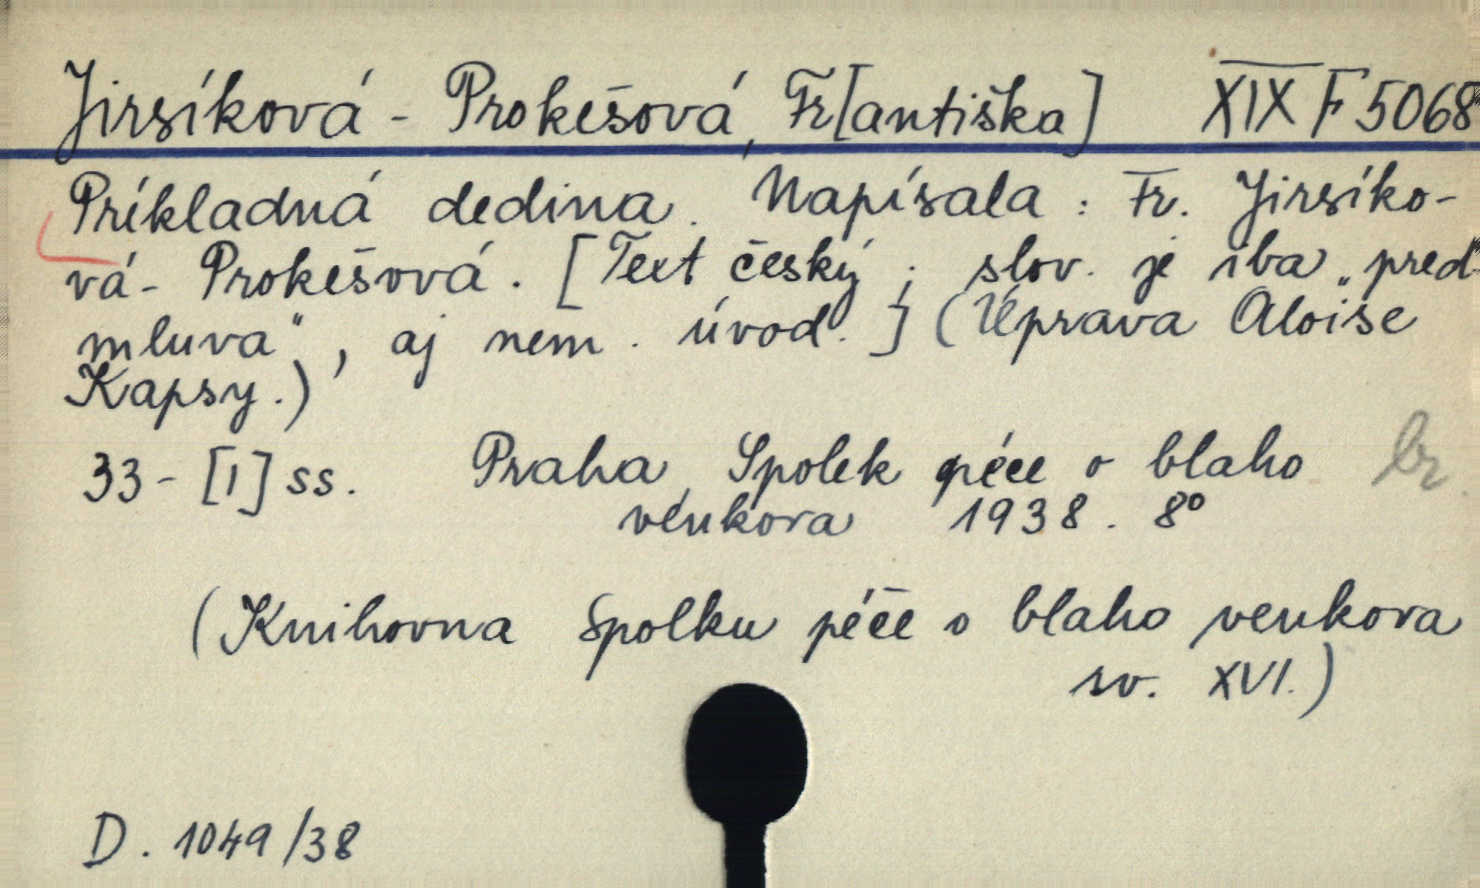 Jirsíková - Prokešová, Fr[antiška] XIX F 5068
Príkladná dedina. Napísala: Fr. Jirsíko-
vá - Prokešová. [Text český; slov. je iba „pred-
mluva", aj nem. úvod.] (Úprava Aloise
Kapsy.)
33 - [1] ss. Praha, Spolek péče o blaho br
venkova 1938. 8°
(Knihovna Spolku péče o blaho venkova
sv. XVI.)
D. 1049/38